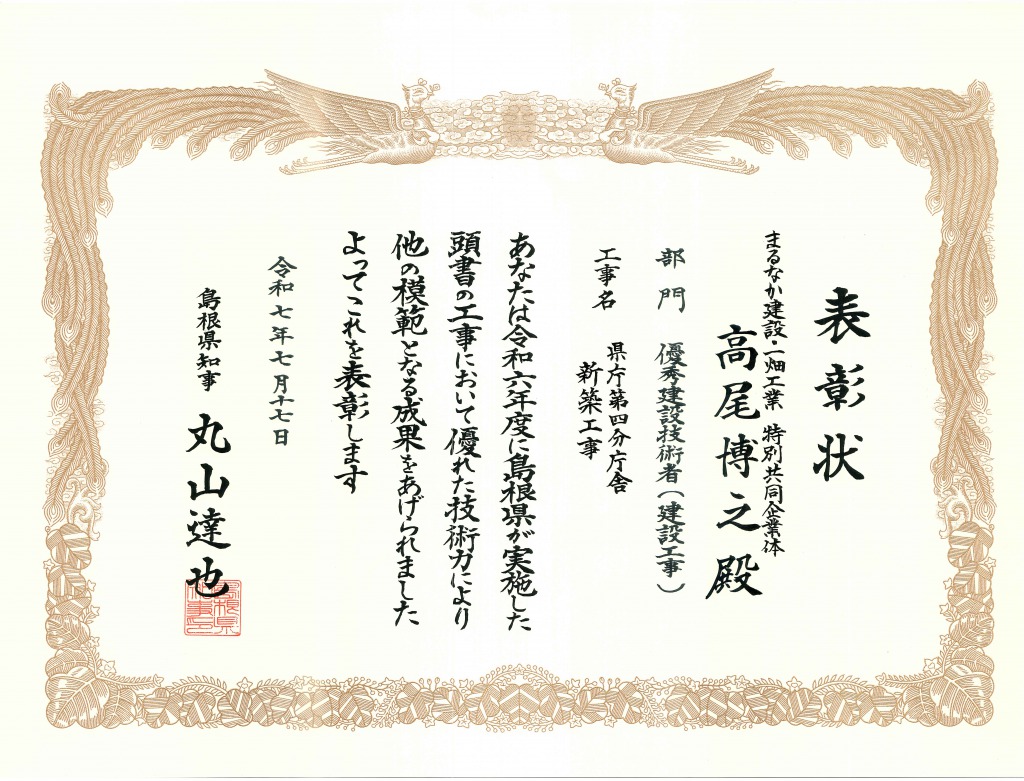 表彰状
まるなか建設・一畑工業 特別共同企業体
高尾博之殿
部門 優秀建設技術者(建設工事)
工事名 県庁第四分庁舎
新築工事
あなたは令和六年度に島根県が実施した
頭書の工事において優れた技術力により
他の模範となる成果をあげられました
よってこれを表彰します
令和七年七月十七日
島根県知事 丸山達也
島根県
知事之印